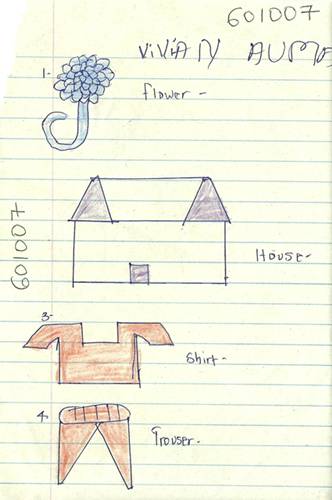 601007
ViViAN AUMA
1-
flower -
601007
House -
3-
Shirt -
4-
Trouser -